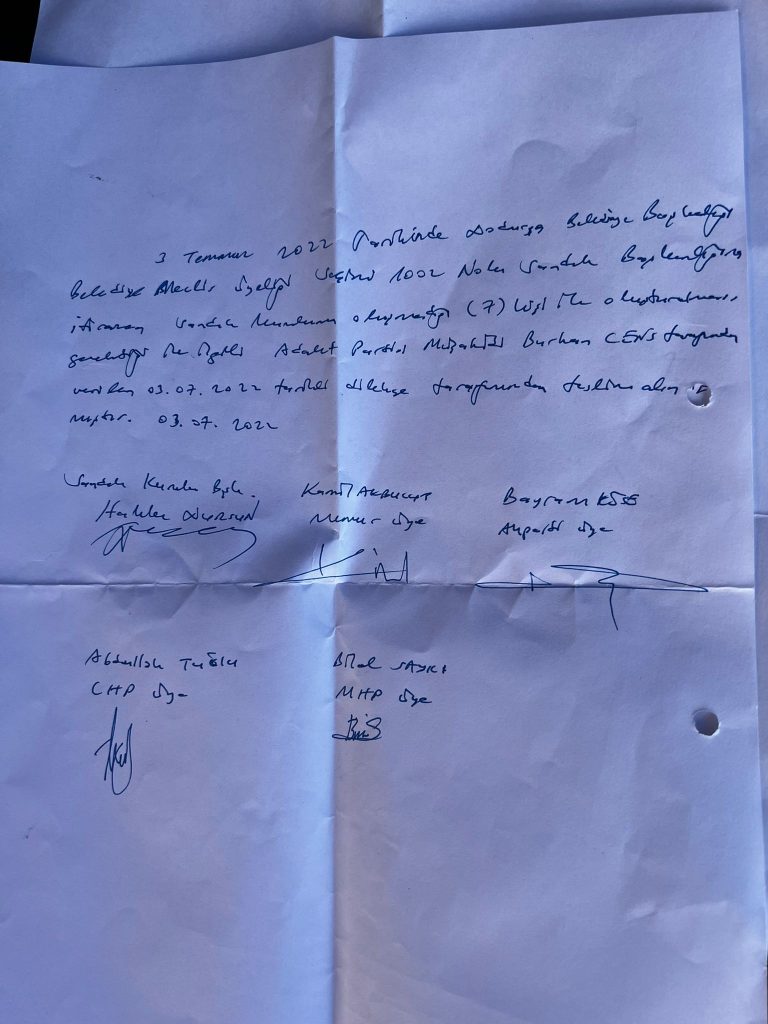 3 Temmuz 2022 Tarihinde Dodurga Belediye Başkanlığı
Belediye Meclis Üyeliği Seçimi 1002 Nolu Sandık Başkanlığına
itirazen Sandık kurulunun oluşmadığı (7) kişi ile oluşturulması
gerektiği ile ilgili Adalet Partisi Müşahidi Burhan CENS tarafından
verilen 03.07.2022 tarihli dilekçe tarafımızdan teslim alın
mıştır. 03.07.2022
Sandık Kurulu Bşk. Kamil AKBULUT Bayram KÖSE
Hakkı DURSUN Memur Üye Akparti Üye
Abdullah TUĞLU Bilal
CHP Üye MHP Üye